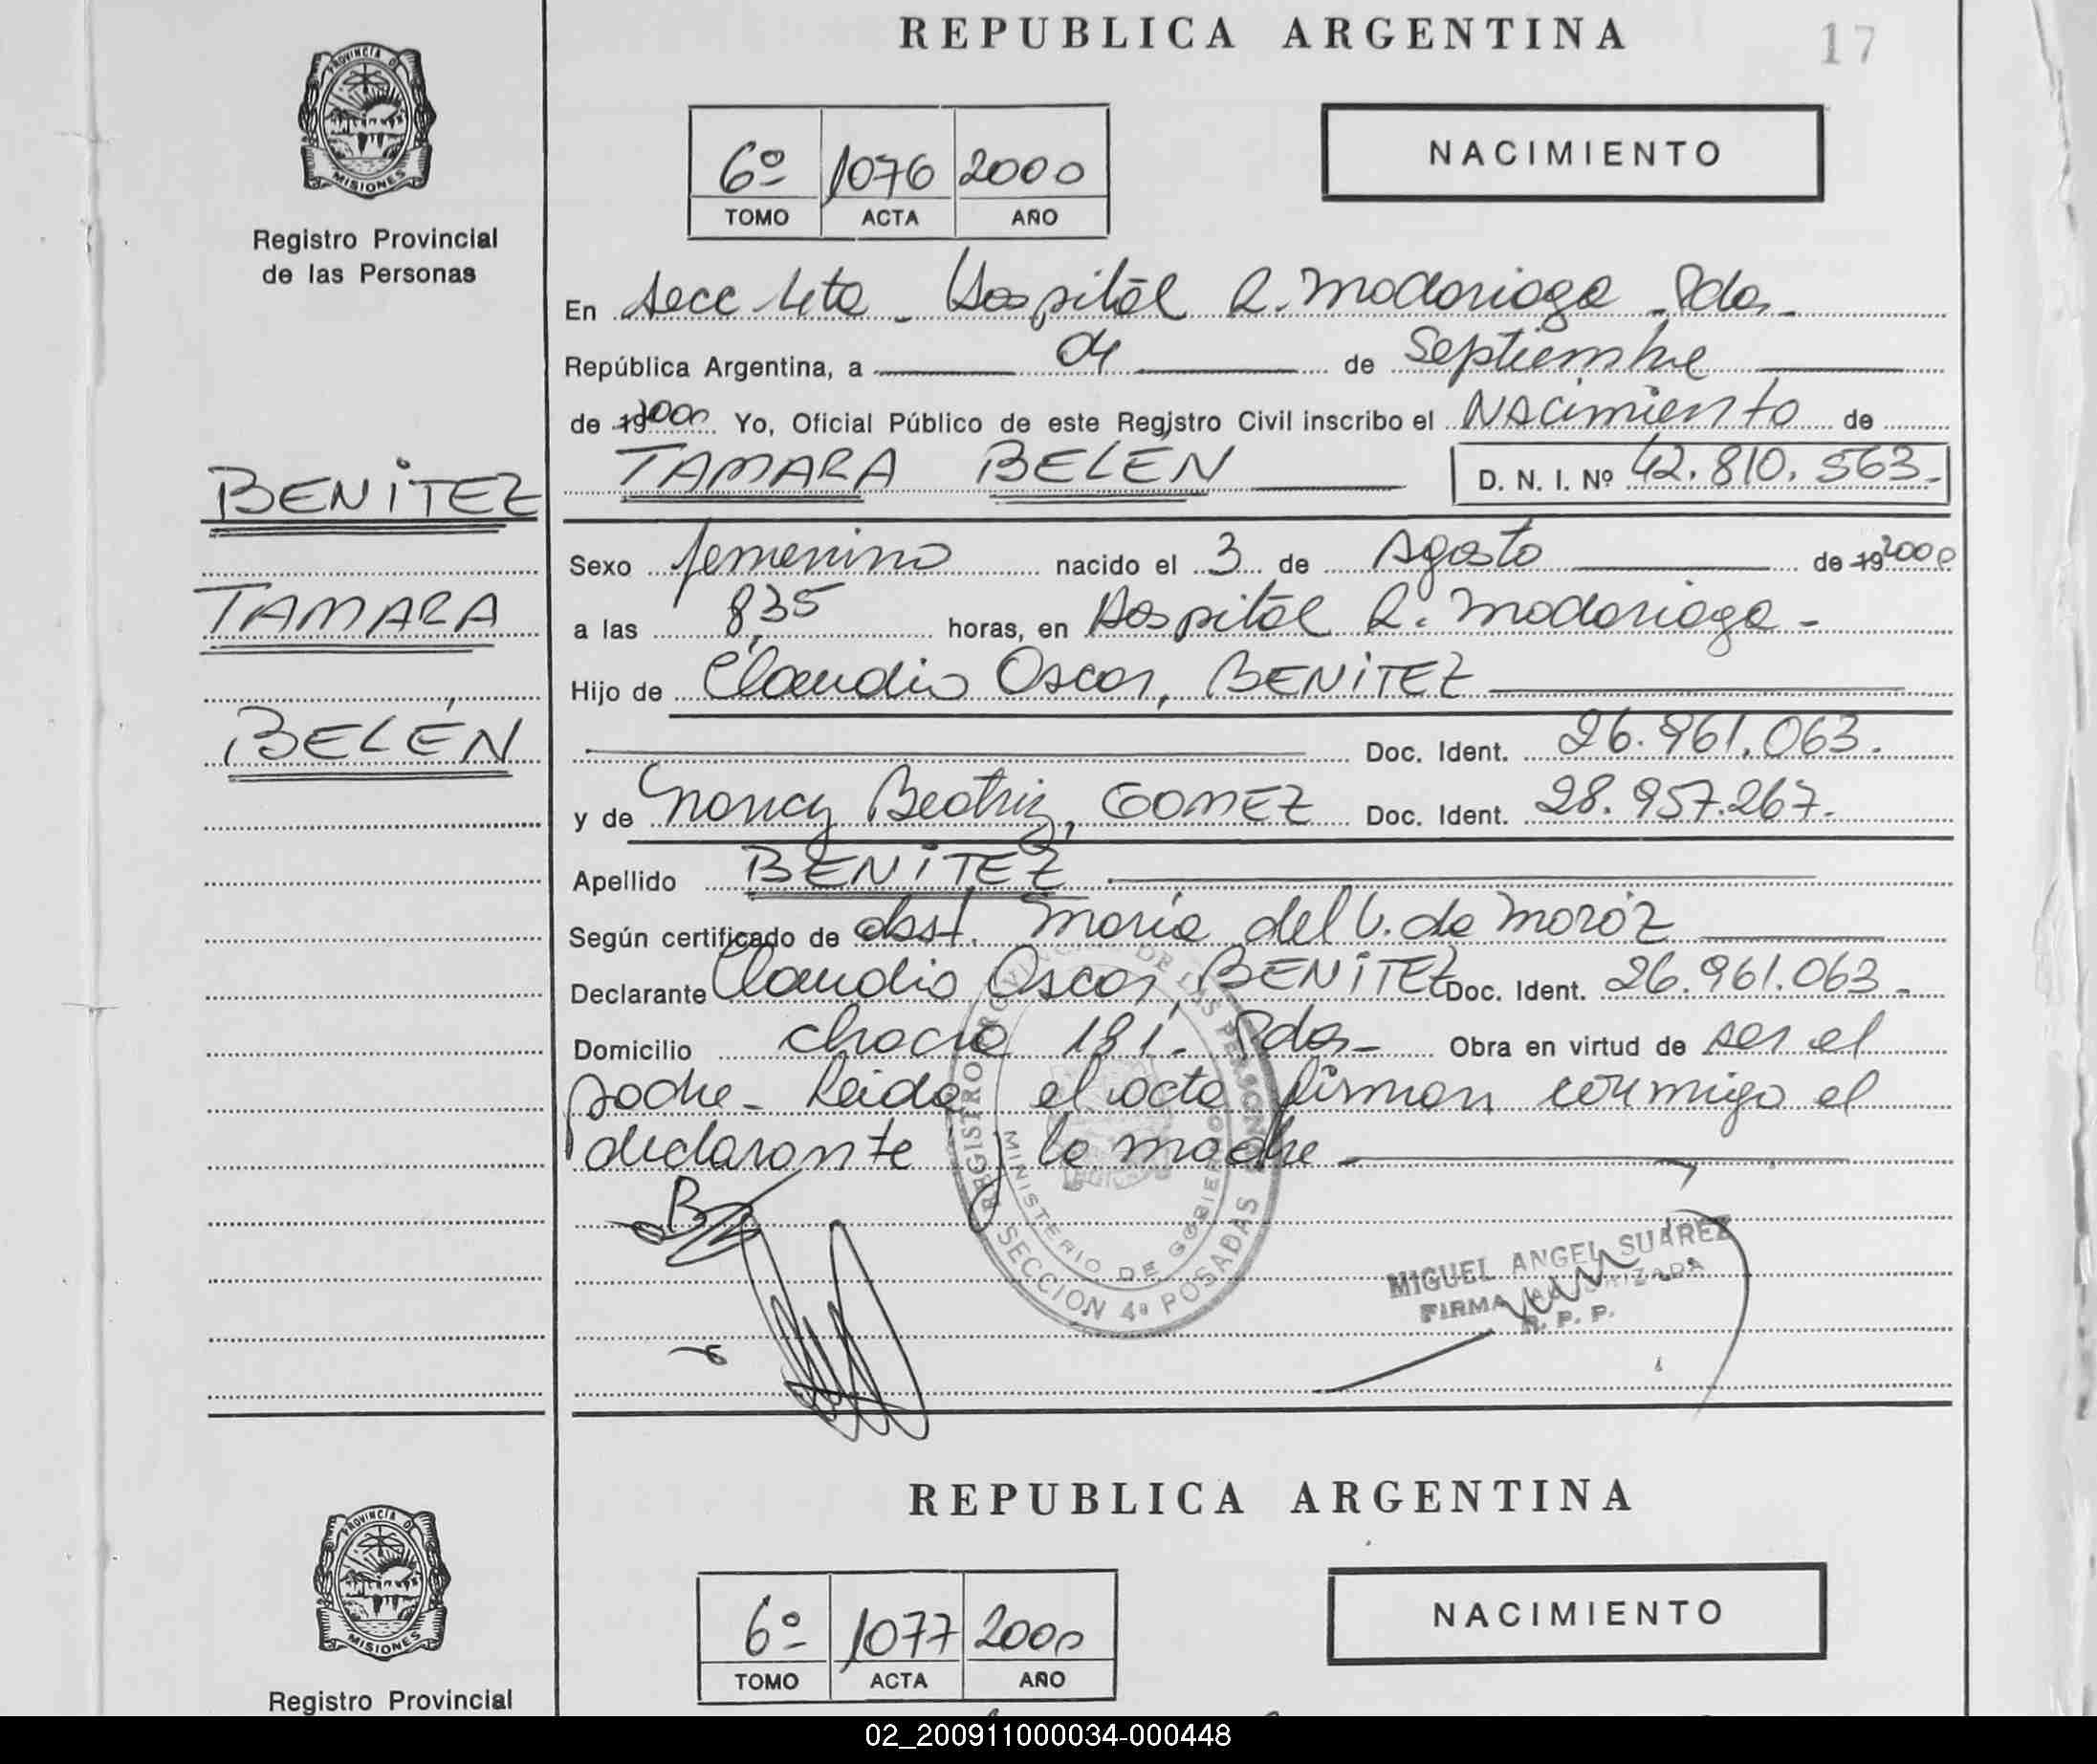 REPUBLICA ARGENTINA
17
PROVINCIA DE
MISIONES
Registro Provincial
de las Personas
6º 1076 2000
TOMO ACTA AÑO
NACIMIENTO
En Secc 4ta - Hospital R. Madariaga - Pdas -
República Argentina, a 04 de Septiembre
de 19 2000 Yo, Oficial Público de este Registro Civil inscribo el Nacimiento de
BENITEZ
TAMARA BELÉN
D. N. I. Nº 42.810.563.-
Sexo femenino nacido el 3 de Agosto de 19 2000
TAMARA
a las 8,35 horas, en Hospital R. Madariaga -
Hijo de Claudio Oscar, BENITEZ
BELÉN
Doc. Ident. 26.961.063.
y de Nancy Beatriz, GOMEZ Doc. Ident. 28.957.267.-
Apellido BENITEZ
Según certificado de obst. María del C. de Moroz
Declarante Claudio Oscar, BENITEZ Doc. Ident. 26.961.063 -
Domicilio chacra 181 - Pdas - Obra en virtud de ser el
padre - Leida el acta firman conmigo el
declarante y la madre
REGISTRO PROVINCIAL DE LAS PERSONAS
MINISTERIO DE GOBIERNO
SECCION 4ª POSADAS
MIGUEL ANGEL SUAREZ
FIRMA AUTORIZADA
R. P. P.
REPUBLICA ARGENTINA
PROVINCIA DE
MISIONES
6º 1077 2000
TOMO ACTA AÑO
NACIMIENTO
Registro Provincial
02_200911000034-000448